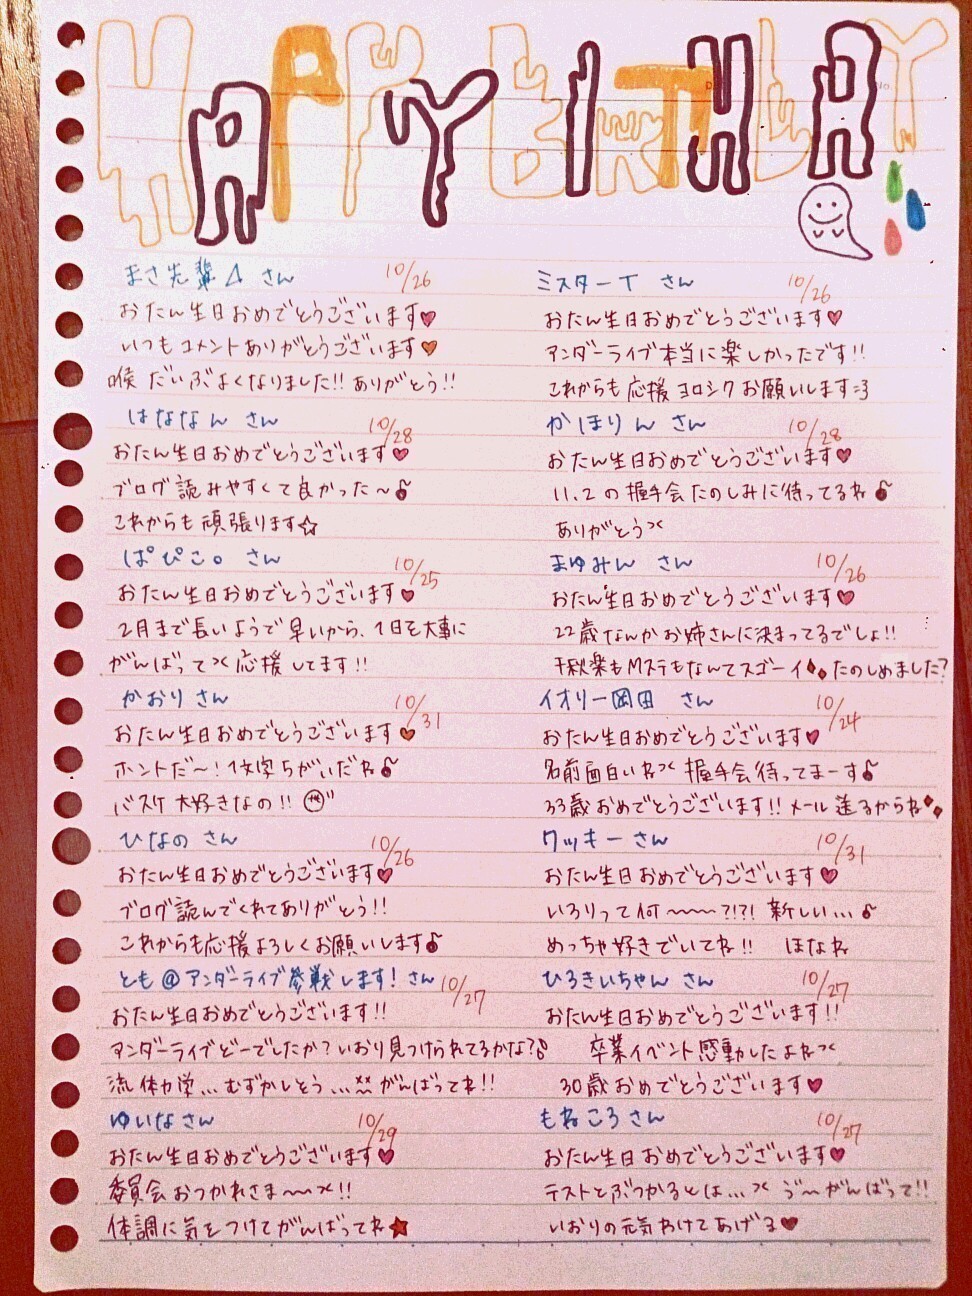 HAPPY BIRTHDAY
HAPPY BIRTHDAY
まさ先輩⊿ さん 10/26
おたん生日おめでとうございます♥
いつもコメントありがとうございます♥
喉 だいぶよくなりました!! ありがとう!!
はななん さん 10/28
おたん生日おめでとうございます♥
ブログ読みやすくて良かった〜♪
これからも頑張ります☆
ぱぴこ。さん 10/25
おたん生日おめでとうございます♥
2月まで長いようで早いから、1日を大事に
がんばってつく応援してます!!
かおりさん 10/31
おたん生日おめでとうございます♥
ホントだ〜!1文字ちがいだね♪
バスケ大好きなの!!
ひなのさん 10/26
おたん生日おめでとうございます♥
ブログ読んでくれてありがとう!!
これからも応援よろしくお願いします♪
とも@アンダーライブ参戦します!さん 10/27
おたん生日おめでとうございます!!
アンダーライブどーでしたか?いおり見つけられてるかな?♪
流体力学...むずかしそう...がんばってね!!
ゆいなさん 10/29
おたん生日おめでとうございます♥
委員会おつかれさま〜!!
体調に気をつけてがんばってね★
ミスターT さん 10/26
おたん生日おめでとうございます♥
アンダーライブ本当に楽しかったです!!
これからも応援ヨロシクお願いします:3
かほりん さん 10/28
おたん生日おめでとうございます♥
11.2の握手会たのしみに待ってるね♪
ありがとう
まゆみん さん 10/26
おたん生日おめでとうございます♥
22歳なんかお姉さんに決まってるでしょ!!
千秋楽もMステもなんてスゴーイ♦♦たのしめました?
イオリー岡田 さん 10/24
おたん生日おめでとうございます♥
名前面白いね 握手会待ってまーす♪
33歳おめでとうございます!!メール送るからね♦♦
クッキーさん 10/31
おたん生日おめでとうございます♥
いろりって何〜〜?!?!新しい...♪
めっちゃ好きでいてね!! ほなね
ひろきいちゃん さん 10/27
おたん生日おめでとうございます!!
卒業イベント感動したよね
30歳おめでとうございます♥
もねころさん 10/27
おたん生日おめでとうございます♥
テストとぶつかるとは... う〜がんばって!!
いおりの元気わけてあげる♥